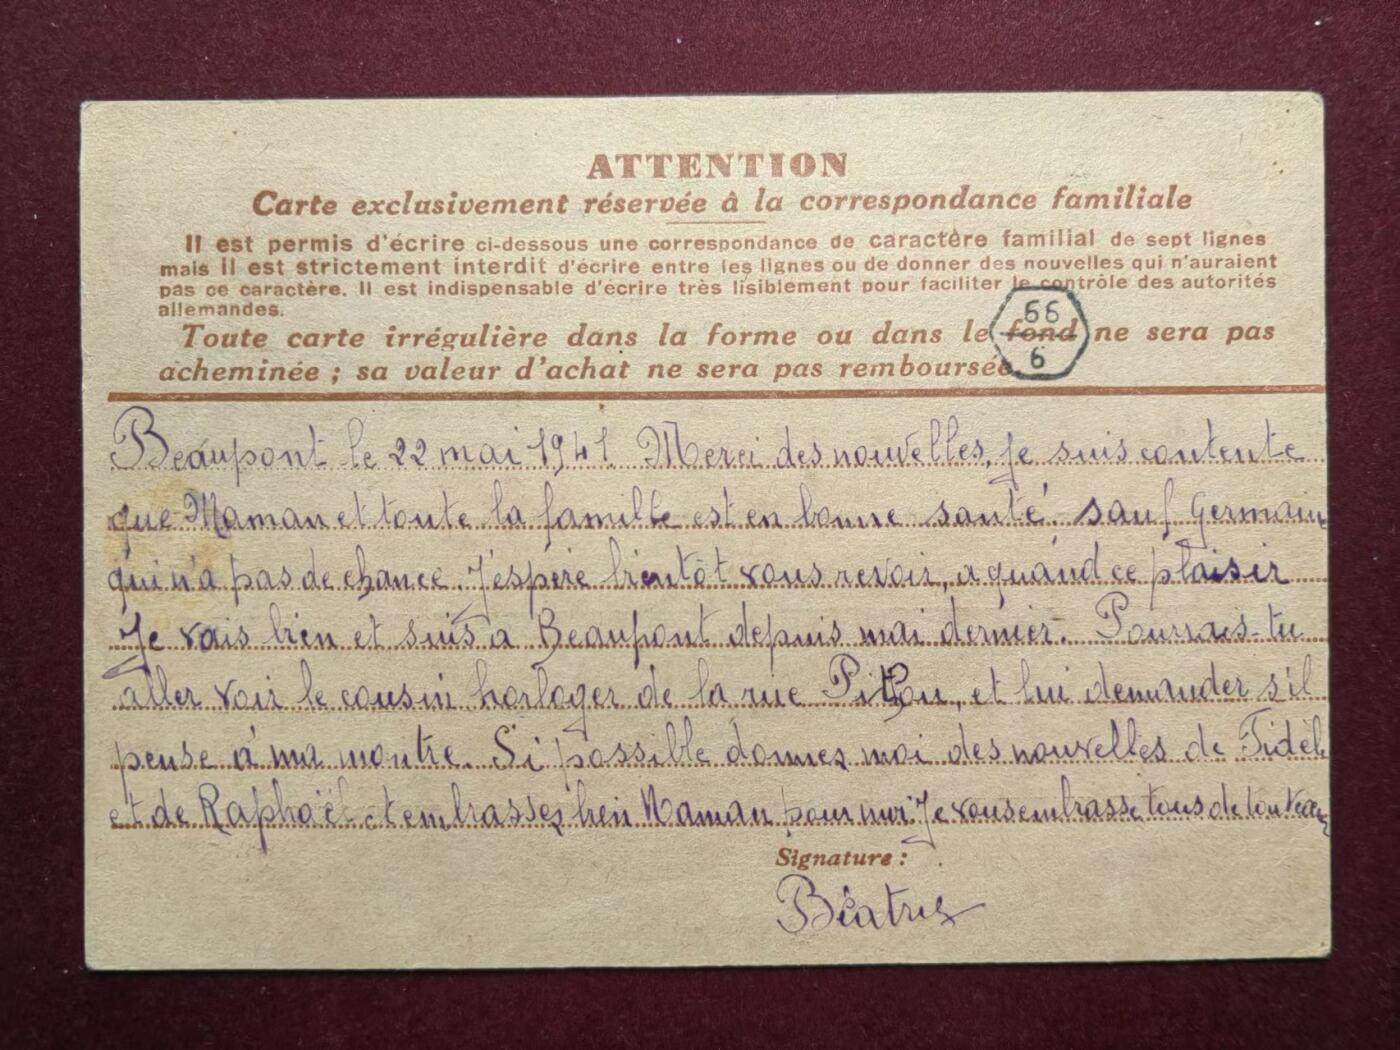 ATTENTION
Carte exclusivement réservée à la correspondance familiale
Il est permis d'écrire ci-dessous une correspondance de caractère familial de sept lignes
mais il est strictement interdit d'écrire entre les lignes ou de donner des nouvelles qui n'auraient
pas ce caractère. Il est indispensable d'écrire très lisiblement pour faciliter le contrôle des autorités
allemandes.
Toute carte irrégulière dans la forme ou dans le fond ne sera pas
acheminée ; sa valeur d'achat ne sera pas remboursée.
66
6
Beaupont le 22 mai 1941. Merci des nouvelles, je suis contente
que Maman et toute la famille est en bonne santé. sauf Germain
qui n'a pas de chance. J'espère bientôt vous revoir, a quand ce plaisir
Je vais bien et suis a Beaupont depuis mai dernier. Pourrais-tu
aller voir le cousin horloger de la rue, et lui demander s'il
pense à ma montre. Si possible donnez moi des nouvelles de Fidèle
et de Raphaël et embrassez bien Maman pour moi Je vous embrasse tous de tout
Signature :
Béatrix